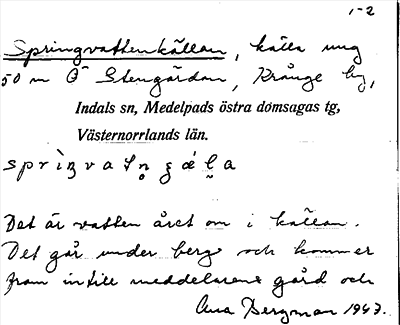 1-2
Springvattenkällan, källa ung
50 m Ö Stengårdan, Krånge by,
Indals sn, Medelpads östra domsagas tg,
Västernorrlands län.
Det är vatten året om i källan.
Det går under berg och kommer
fram intill meddelarens gård och
Ana Bergman 1963.